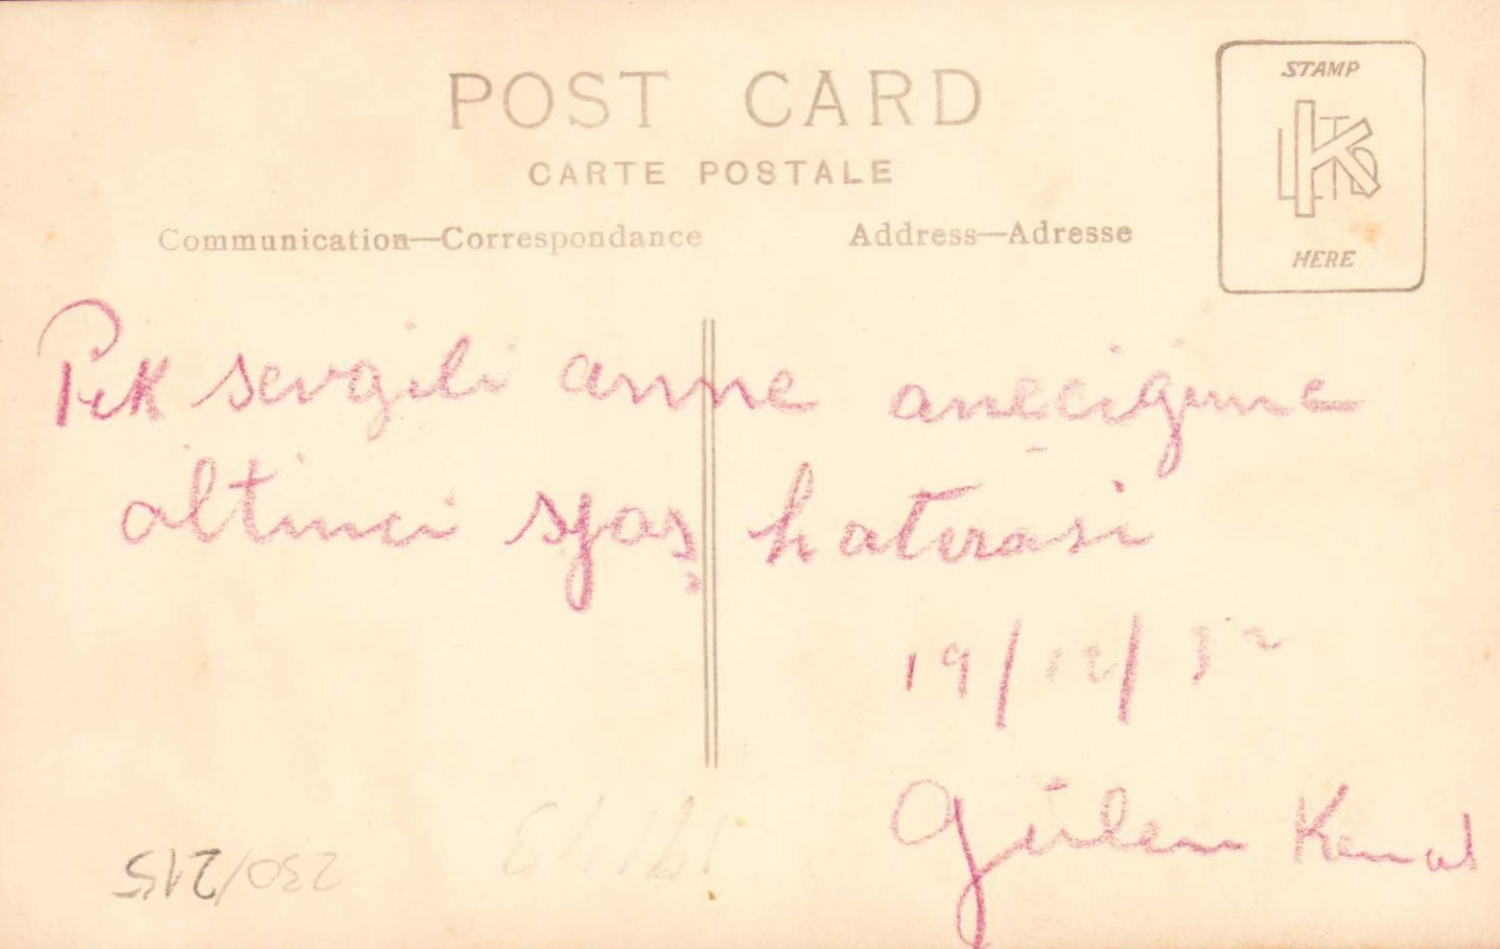 POST CARD
CARTE POSTALE
Communication—Correspondance
Address—Adresse
STAMP
HERE
Pek sevgili anne anneciğime
altıncı yaş hatırası
19/12/32
Gürlem Kemal
230/215